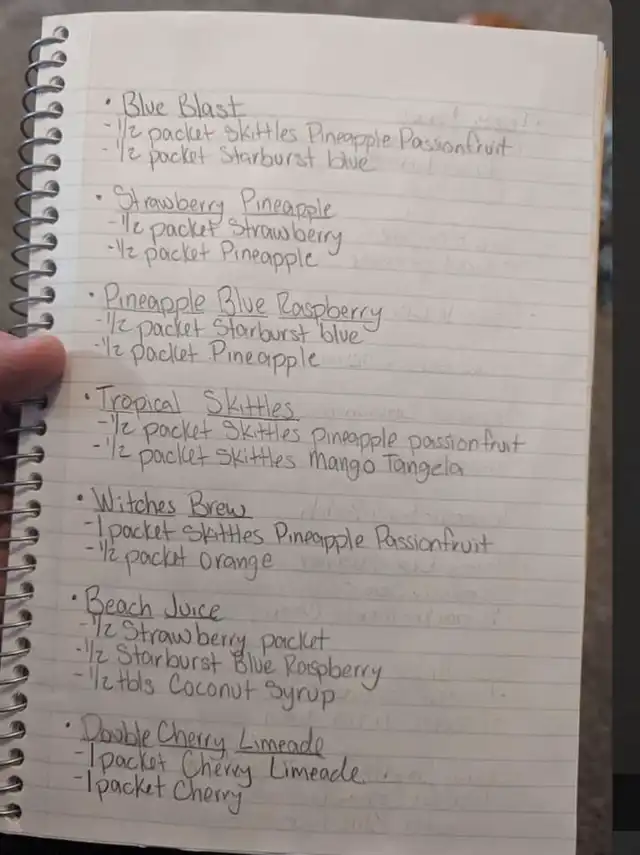 • Blue Blast
- 1/2 packet Skittles Pineapple Passionfruit
- 1/2 packet Starburst blue
• Strawberry Pineapple
- 1/2 packet Strawberry
- 1/2 packet Pineapple
• Pineapple Blue Raspberry
- 1/2 packet Starburst blue
- 1/2 packet Pineapple
• Tropical Skittles
- 1/2 packet Skittles pineapple passionfruit
- 1/2 packet Skittles Mango Tangela
• Witches Brew
- 1 packet Skittles Pineapple Passionfruit
- 1/2 packet orange
• Beach Juice
- 1/2 Strawberry packet
- 1/2 Starburst Blue Raspberry
- 1/2 tbls Coconut Syrup
• Double Cherry Limeade
- 1 packet Cherry Limeade
- 1 packet Cherry